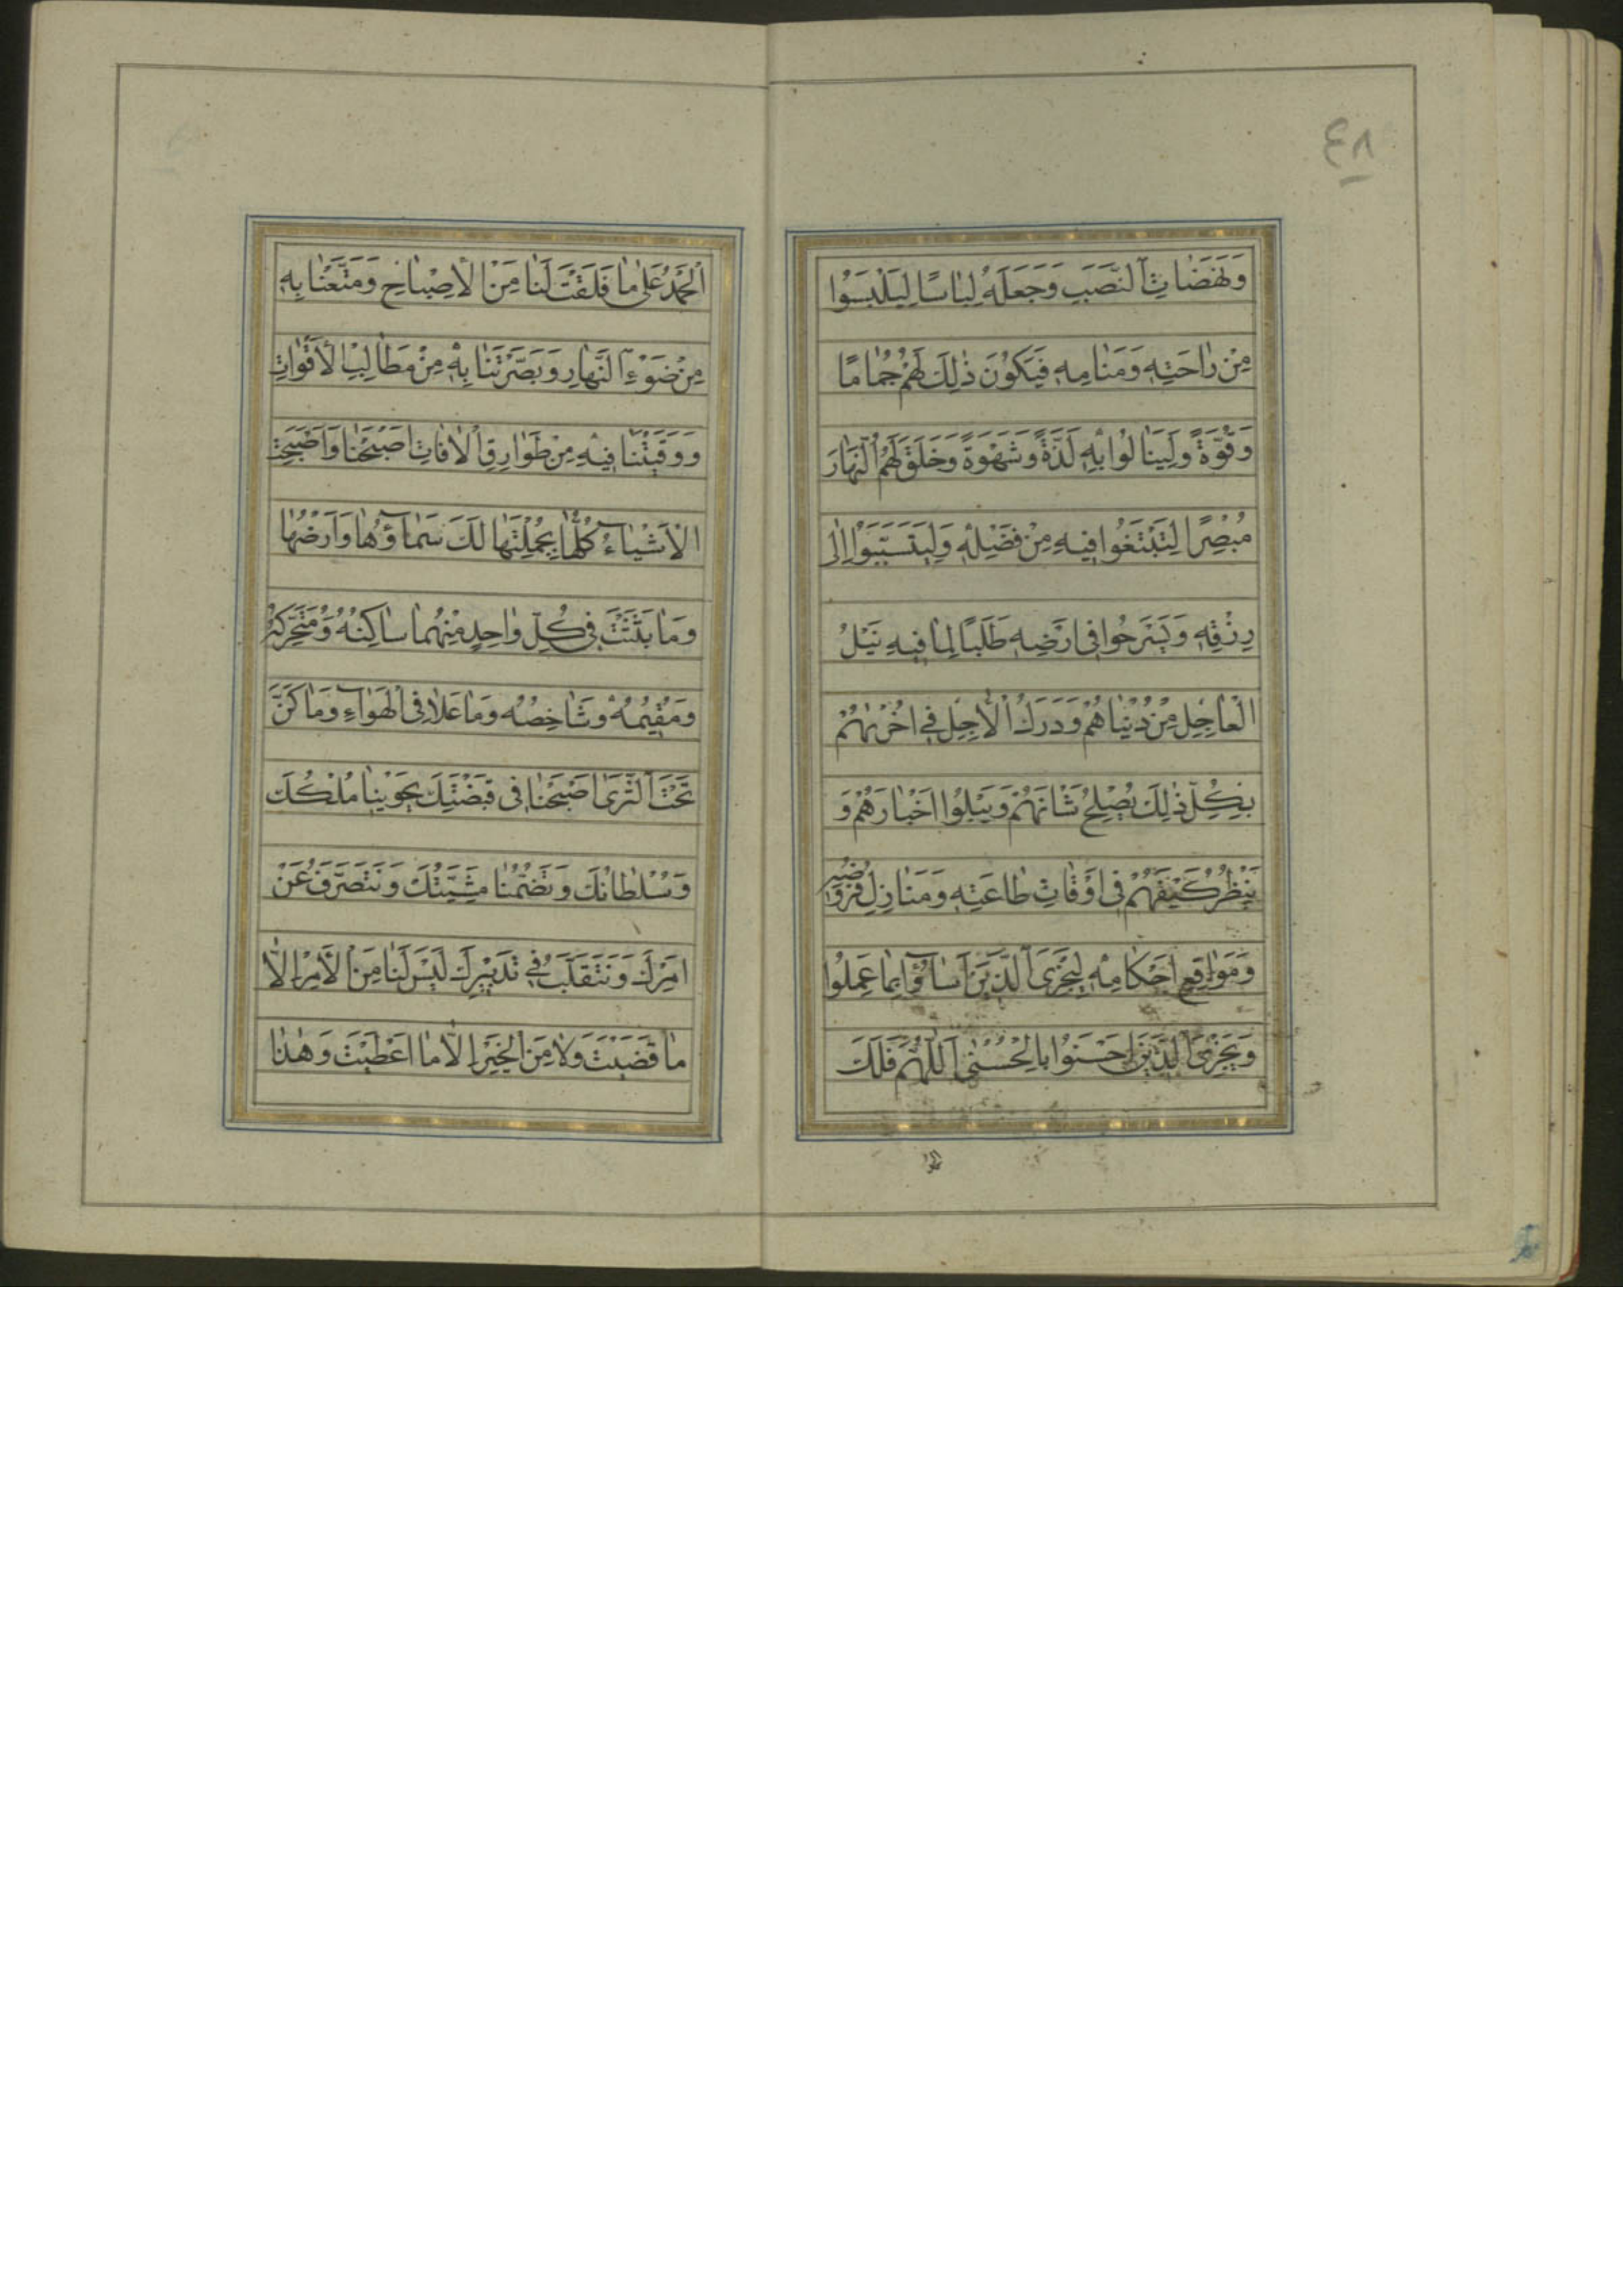 ٤٨
وَنَهَضَاتِ النَّصَبِ وَجَعَلَهُ لِبَاسًا لِيَلْبَسُوا
مِنْ رَاحَتِهِ وَمَنَامِهِ فَيَكُونَ ذٰلِكَ لَهُمْ جُمَامًا
وَقُوَّةً وَلِيَنَالُوا بِهِ لَذَّةً وَشَهْوَةً وَخَلَقَ لَهُمُ النَّهَارَ
مُبْصِرًا لِيَبْتَغُوا فِيهِ مِنْ فَضْلِهِ وَلِيَتَسَبَّبُوا اِلٰى
رِزْقِهِ وَيَسْرَحُوا فِي اَرْضِهِ طَلَبًا لِمَا فِيهِ نَيْلُ
الْعَاجِلِ مِنْ دُنْيَاهُمْ وَدَرَكُ الْاٰجِلِ فِي اُخْرٰىهُمْ
بِكُلِّ ذٰلِكَ يُصْلِحُ شَانَهُمْ وَيَبْلُوا اَخْبَارَهُمْ وَ
يَنْظُرُ كَيْفَ هُمْ فِي اَوْقَاتِ طَاعَتِهِ وَمَنَازِلِ فُرُوضِهِ
وَمَوَاقِعِ اَحْكَامِهِ لِيَجْزِيَ الَّذِينَ اَسَاؤُا بِمَا عَمِلُوا
وَيَجْزِيَ الَّذِينَ اَحْسَنُوا بِالْحُسْنٰى اَللّٰهُمَّ فَلَكَ
الحمد
اَلْحَمْدُ عَلٰى مَا فَلَقْتَ لَنَا مِنَ الْاِصْبَاحِ وَمَتَّعْتَنَا بِهِ
مِنْ ضَوْءِ النَّهَارِ وَبَصَّرْتَنَا بِهِ مِنْ مَطَالِبِ الْاَقْوَاتِ
وَوَقَيْتَنَا فِيهِ مِنْ طَوَارِقِ الْاٰفَاتِ اَصْبَحْنَا وَاَصْبَحَتِ
الْاَشْيَاءُ كُلُّهَا بِجُمْلَتِهَا لَكَ سَمَاؤُهَا وَاَرْضُهَا
وَمَا بَثَثْتَ فِي كُلِّ وَاحِدٍ مِنْهُمَا سَاكِنُهُ وَمُتَحَرِّكُهُ
وَمُقِيمُهُ وَشَاخِصُهُ وَمَا عَلَا فِي الْهَوَاءِ وَمَا كَنَّ
تَحْتَ الثَّرٰى اَصْبَحْنَا فِي قَبْضَتِكَ يَحْوِينَا مُلْكُكَ
وَسُلْطَانُكَ وَتَضُمُّنَا مَشِيَّتُكَ وَنَتَصَرَّفُ عَنْ
اَمْرِكَ وَنَتَقَلَّبُ فِي تَدْبِيرِكَ لَيْسَ لَنَا مِنَ الْاَمْرِ اِلَّا
مَا قَضَيْتَ وَلَا مِنَ الْخَيْرِ اِلَّا مَا اَعْطَيْتَ وَهٰذَا